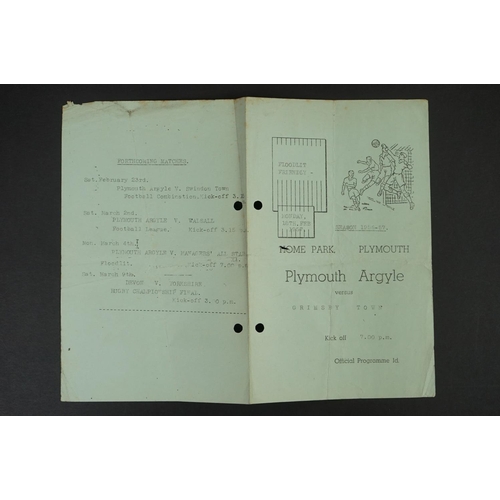 FORTHCOMING MATCHES.
Sat. February 23rd.
Plymouth Argyle V. Swindon Town
Football Combination. Kick-off 3.
Sat. March 2nd.
PLYMOUTH ARGYLE V. WALSALL
Football League. Kick-off 3.15
Mon. March 4th.
PLYMOUTH ARGYLE V. ALL STAR
Floodlit. Kick-off 7.
Sat. March 9th.
DEVON V.
RUGBY CHAMPIONSHIP FINAL.
Kick-off 3. p.m.
FLOODLIT
FRIENDLY -
MONDAY,
18TH. FEB
SEASON 1956-57.
HOME PARK, PLYMOUTH
Plymouth Argyle
versus
GRIMSBY TOWN
Kick off 7.00 p.m.
Official Programme 1d.